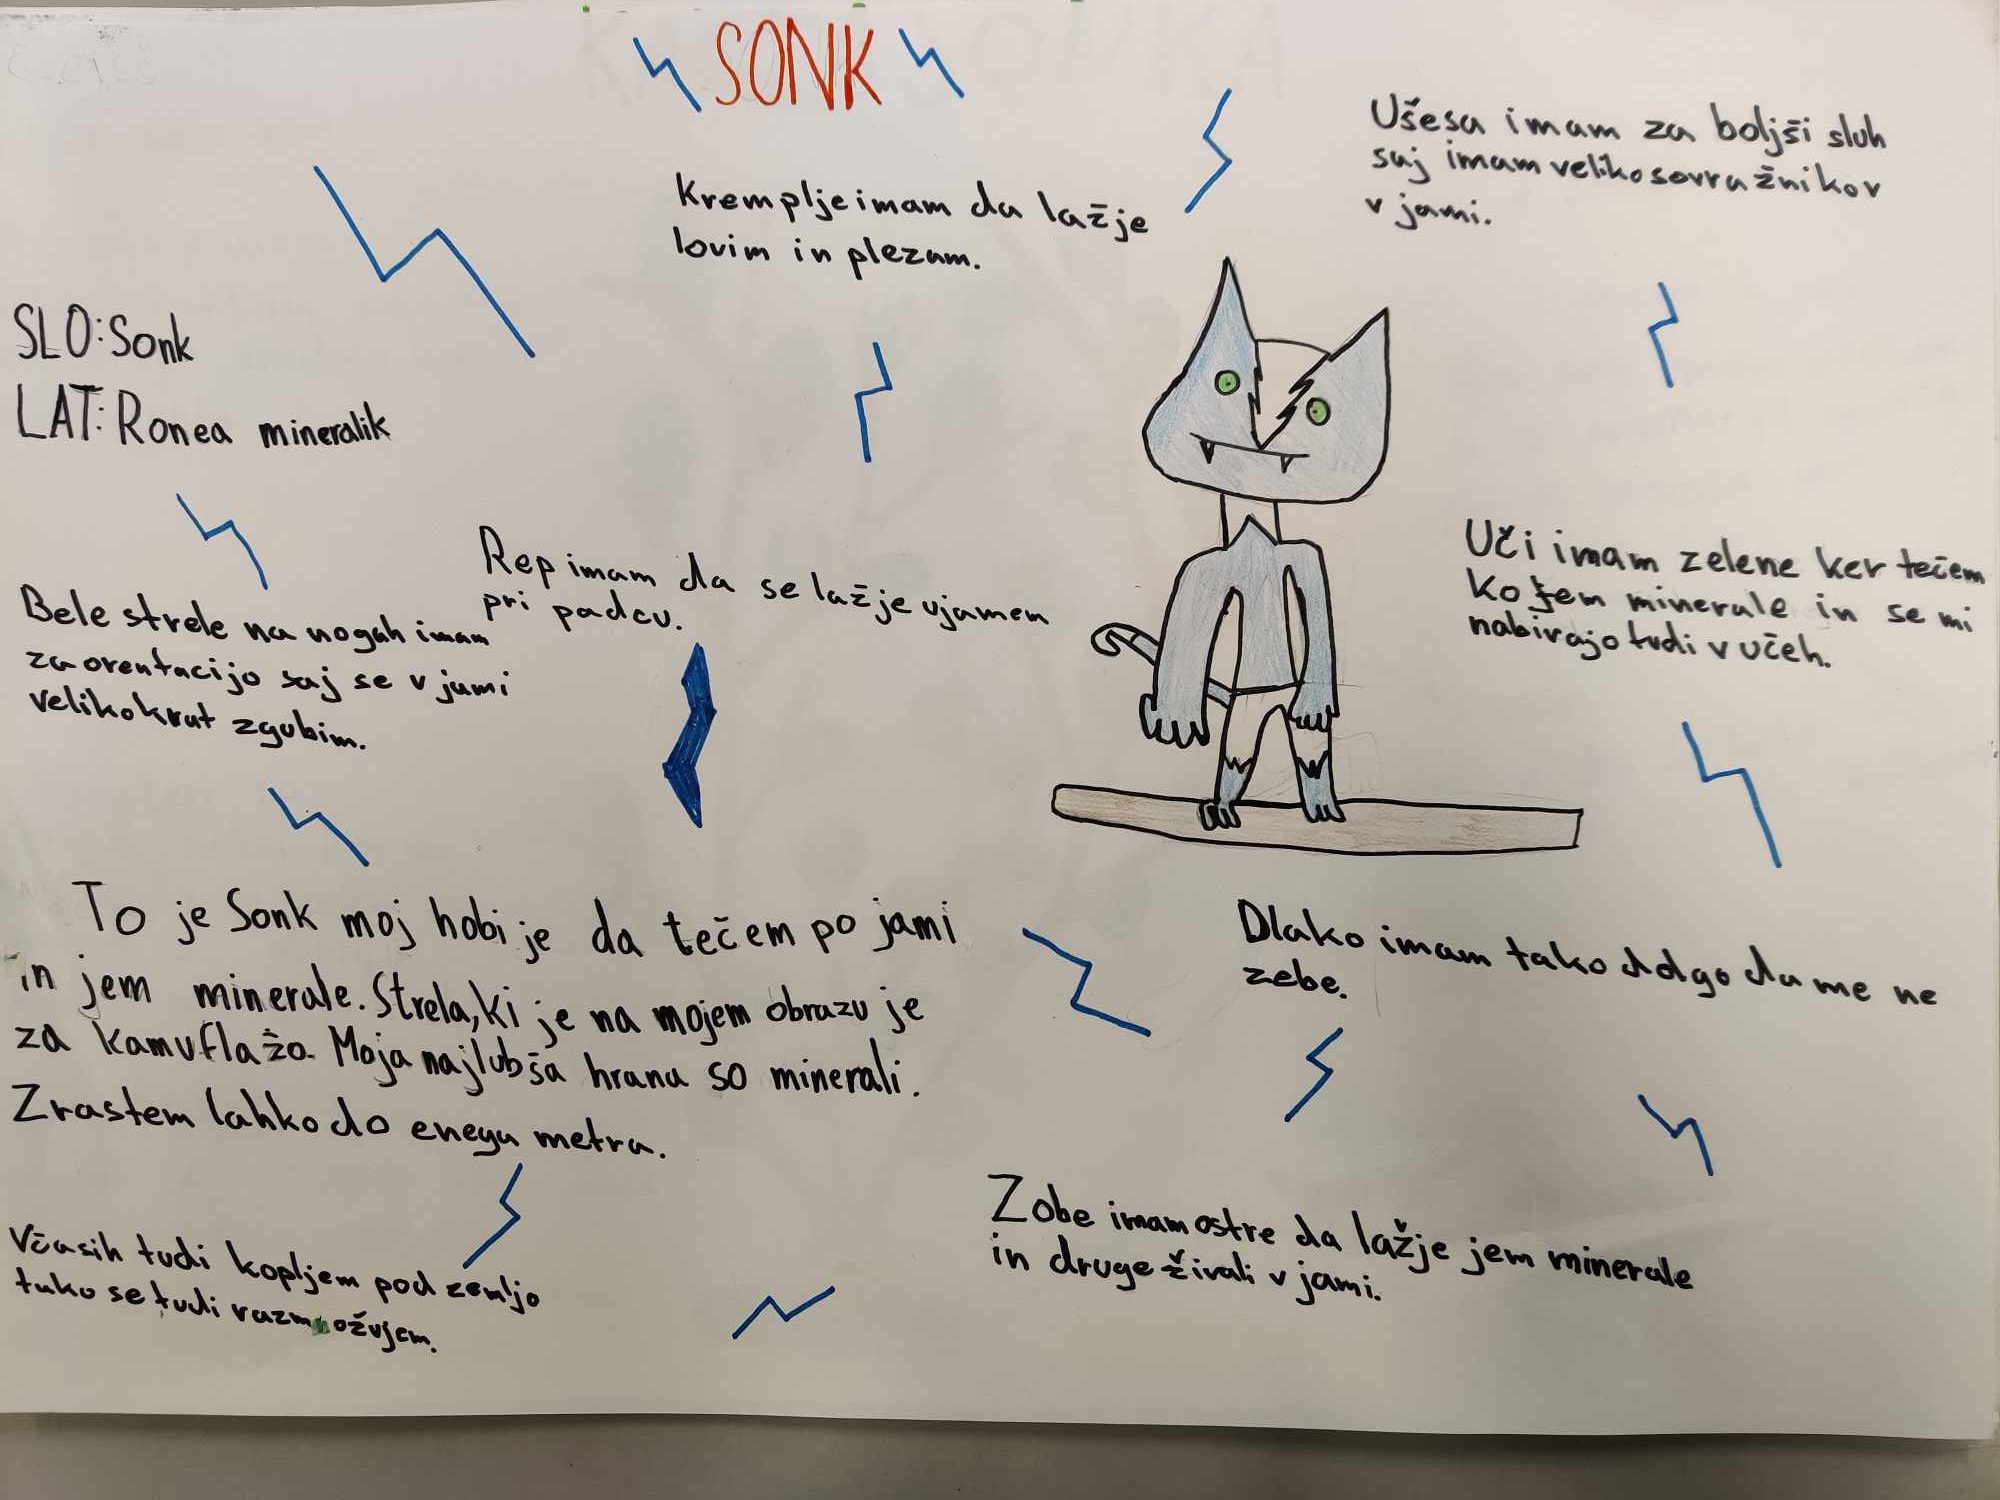 SONK
Ušesa imam za boljši sluh
saj imam veliko sovražnikov
v jami.
Kremplje imam da lažje
lovim in plezam.
SLO: Sonk
LAT: Ronea mineralik
Rep imam da se lažje ujamem
pri padcu.
Uči imam zelene ker tečem
ko jem minerale in se mi
nabirajo tudi v učeh.
Bele strele na nogah imam
za orentacijo saj se v jami
velikokrat zgubim.
To je Sonk moj hobi je da tečem po jami
in jem minerale. Strela, ki je na mojem obrazu je
za kamuflažo. Moja najlubša hrana so minerali.
Zrastem lahko do enega metra.
Dlako imam tako dolgo da me ne
zebe.
Včasih tudi kopljem pod zemljo
tako se tudi razmnožujem.
Zobe imam ostre da lažje jem minerale
in druge živali v jami.